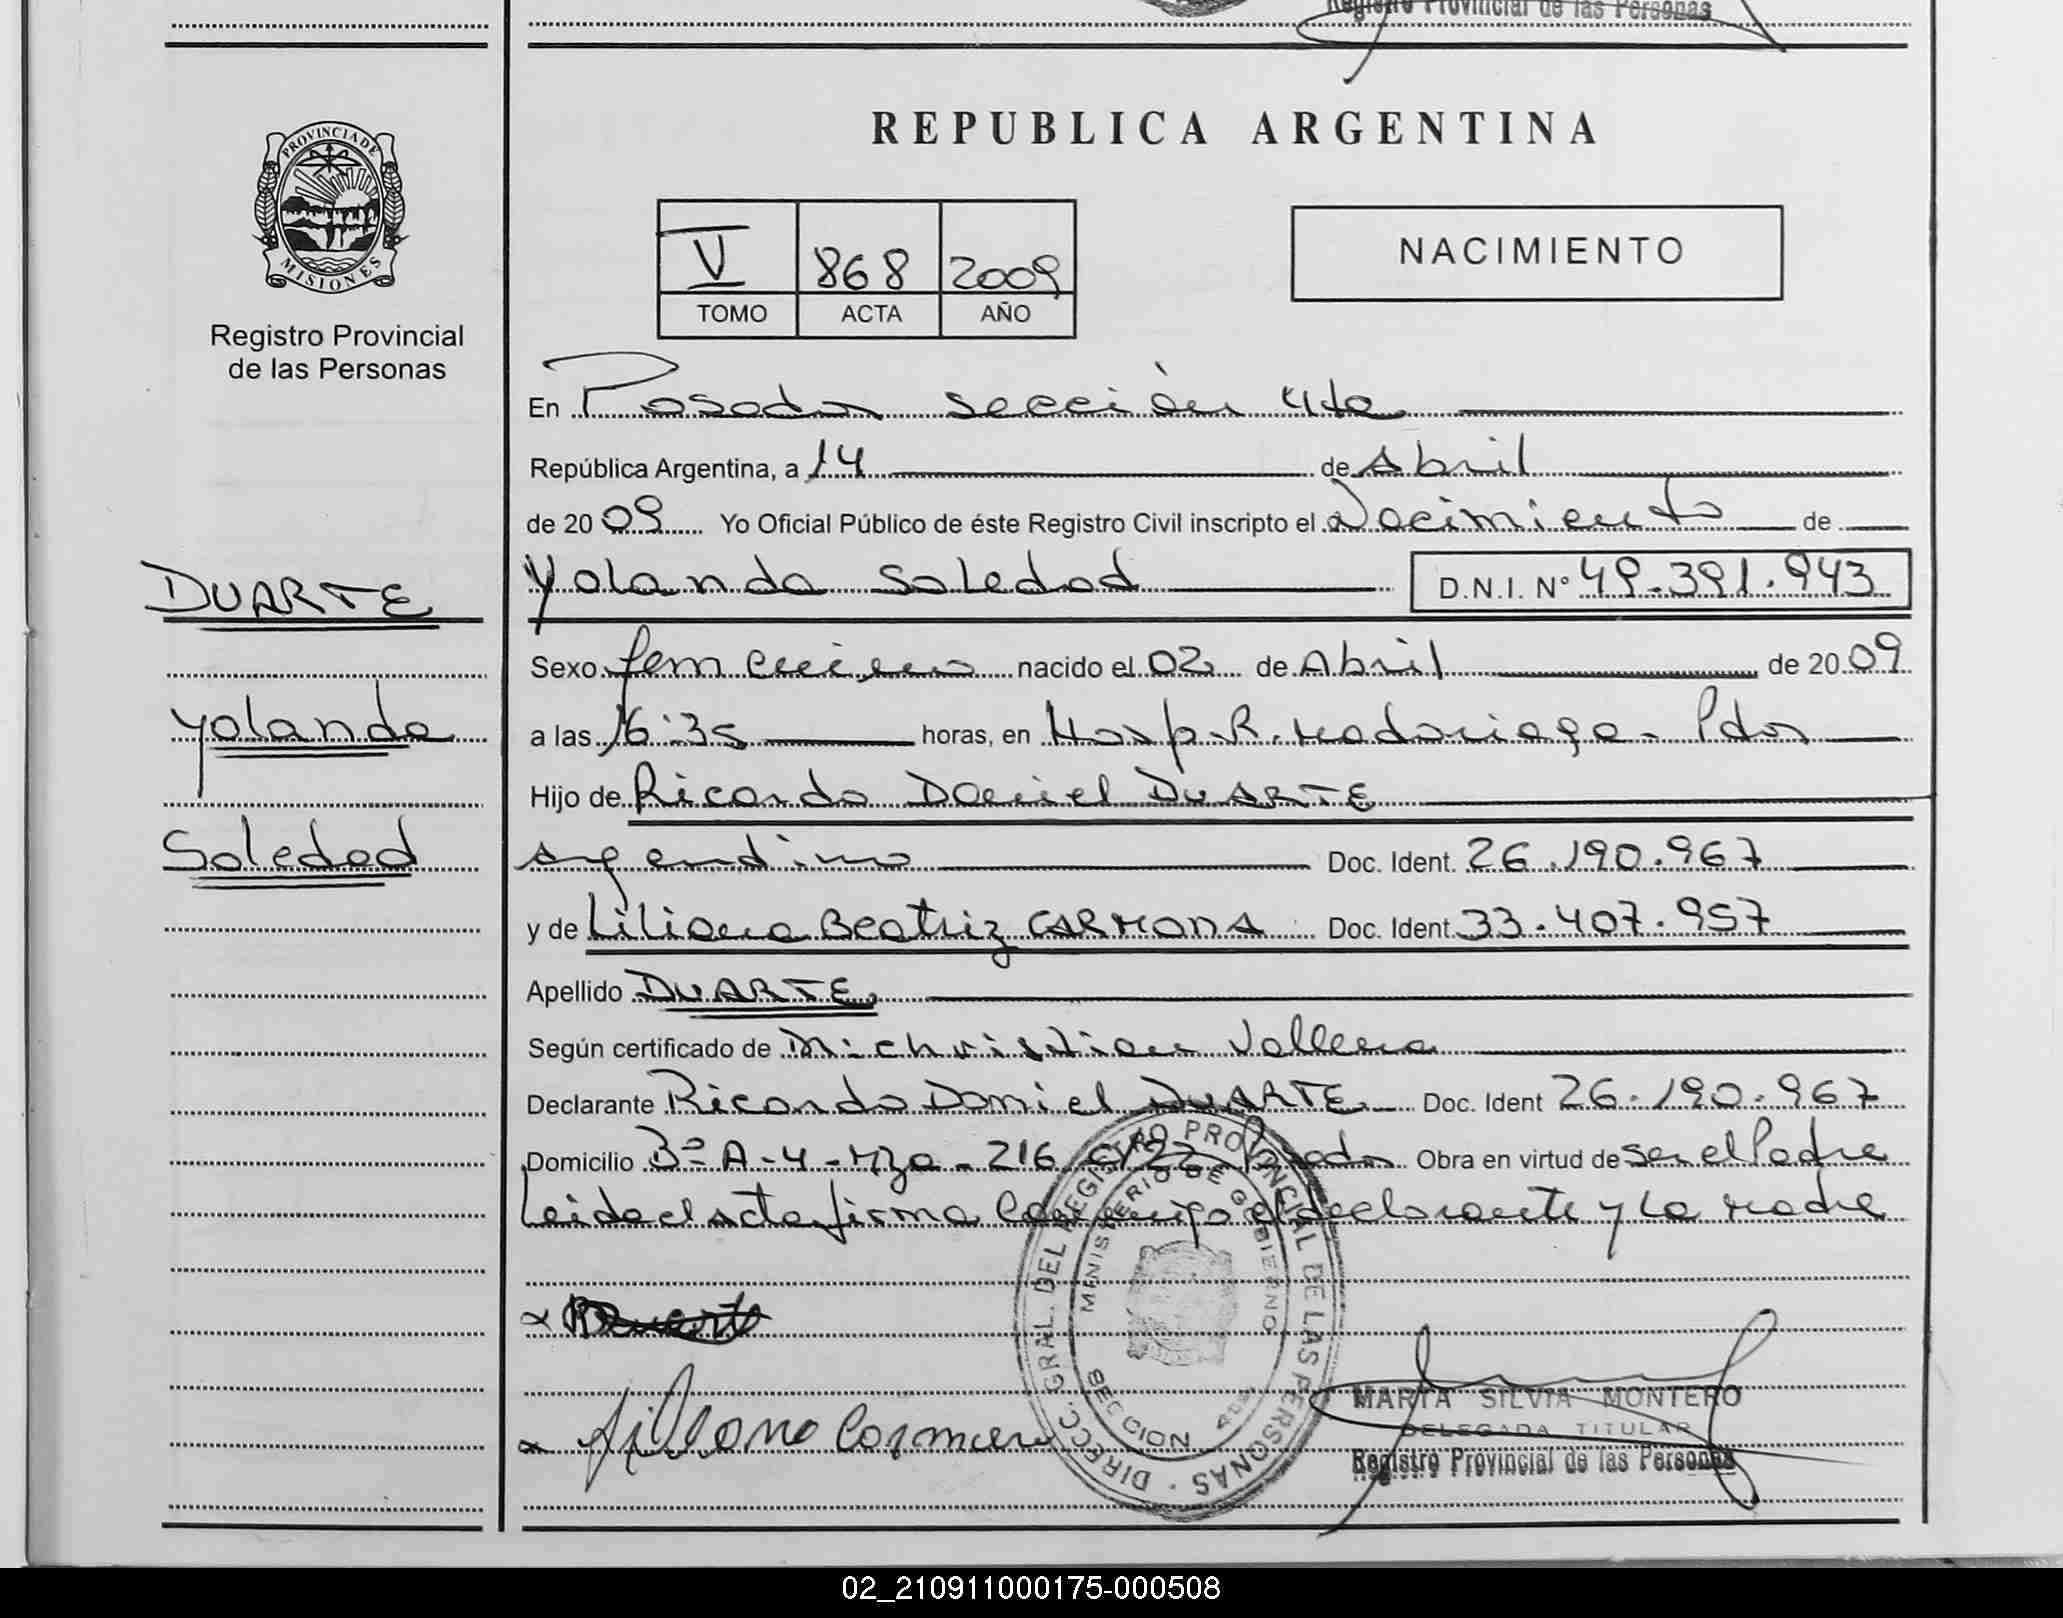 Registro Provincial de las Personas
PROVINCIA DE
MISIONES
Registro Provincial
de las Personas
DUARTE
Yolanda
Soledad
REPUBLICA ARGENTINA
V 868 2009
TOMO ACTA AÑO
NACIMIENTO
En Posadas sección 4ta
República Argentina, a 14 de Abril
de 2009 Yo Oficial Público de éste Registro Civil inscripto el Nacimiento de
Yolanda Soledad D.N.I. Nº 49.391.943
Sexo femenino nacido el 02 de Abril de 2009
a las 16:35 horas, en Hosp. R. Madariaga - Pdas
Hijo de Ricardo Daniel DUARTE
argentino Doc. Ident. 26.190.967
y de Liliana Beatriz CARMONA Doc. Ident. 33.407.957
Apellido DUARTE
Según certificado de Christian Vallena
Declarante Ricardo Daniel DUARTE Doc. Ident 26.190.967
Domicilio Bº A-4-Mza-216 Posadas Obra en virtud de ser el Padre
Leida el acta firma conmigo el declarante y la madre
DIRECC. GRAL. DEL REGISTRO PROVINCIAL DE LAS PERSONAS
MINISTERIO DE GOBIERNO
SECCION
MARTA SILVIA MONTERO
DELEGADA TITULAR
Registro Provincial de las Personas
02_210911000175-000508